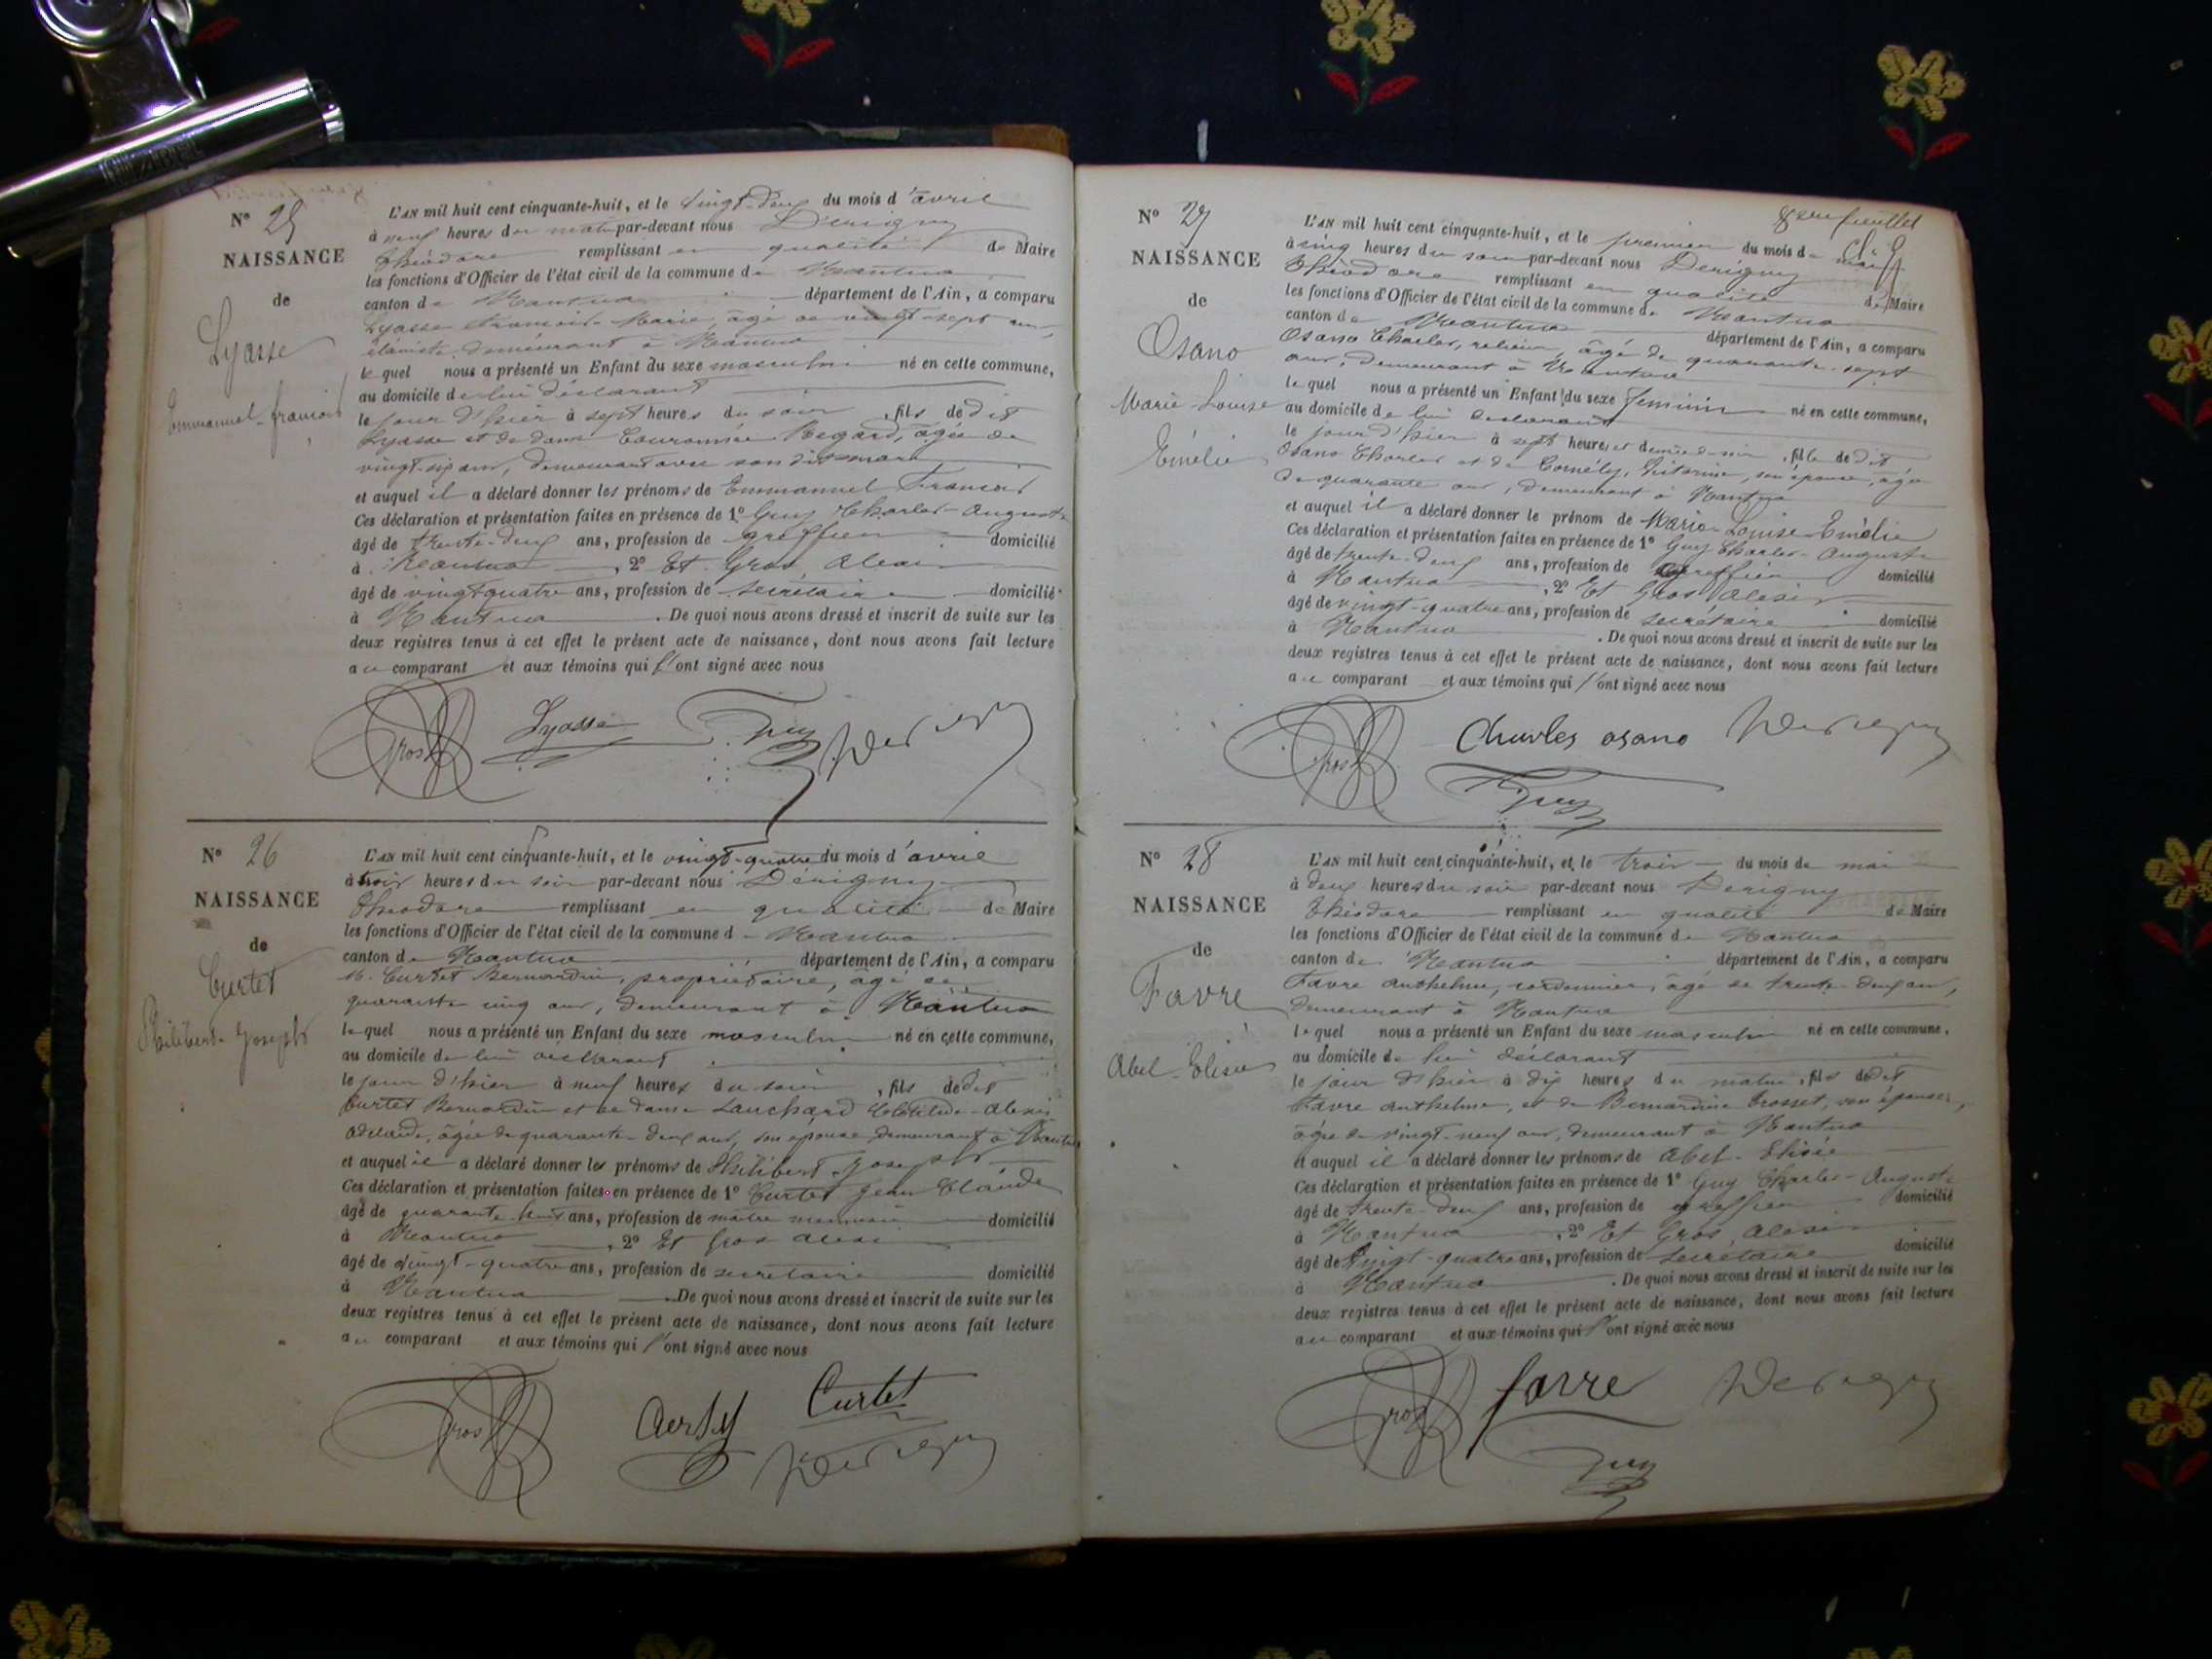 N° 25
NAISSANCE
de
Lyasse
Emmanuel-françois
L'AN mil huit cent cinquante-huit, et le vingt-deux du mois d'avril
à neuf heures du matin par-devant nous Dérigny
Théodore remplissant en qualité de Maire
les fonctions d'Officier de l'état civil de la commune de Nantua
canton de Nantua département de l'Ain, a comparu
Lyasse François-Marie, âgé de vingt-sept ans,
demeurant à Nantua
lequel nous a présenté un Enfant du sexe masculin né en cette commune,
au domicile de lui déclarant
le jour d'hier à sept heures du soir, fils dedit
Lyasse et de dame Couronnée Regard, âgée de
vingt-six ans, demeurant avec son dit mari
et auquel il a déclaré donner les prénoms de Emmanuel François
Ces déclaration et présentation faites en présence de 1° Guy Charles-Auguste
âgé de trente-deux ans, profession de greffier domicilié
à Nantua, 2° Et Gros Alexis
âgé de vingt quatre ans, profession de secrétaire domicilié
à Nantua. De quoi nous avons dressé et inscrit de suite sur les
deux registres tenus à cet effet le présent acte de naissance, dont nous avons fait lecture
au comparant et aux témoins qui l'ont signé avec nous
Gros Lyasse Guy Derigny
N° 26
NAISSANCE
de
Curtet
Philibert-Joseph
L'AN mil huit cent cinquante-huit, et le vingt-quatre du mois d'avril
à trois heures du soir par-devant nous Dérigny
Théodore remplissant en qualité de Maire
les fonctions d'Officier de l'état civil de la commune d Nantua
canton de Nantua département de l'Ain, a comparu
M. Curtet Bernardin, propriétaire, âgé de
quarante cinq ans, demeurant à Nantua
lequel nous a présenté un Enfant du sexe masculin né en cette commune,
au domicile de lui déclarant
le jour d'hier à neuf heures du soir, fils dedit
Curtet Bernardin et de dame Lanchard Clotilde-Alexis
Adélaïde, âgée de quarante-deux ans, son épouse demeurant à Nantua
et auquel il a déclaré donner les prénoms de Philibert-Joseph
Ces déclaration et présentation faites en présence de 1° Curtet Jean Claude
âgé de quarante-huit ans, profession de maître menuisier domicilié
à Nantua, 2° Et Gros Alexis
âgé de vingt-quatre ans, profession de secrétaire domicilié
à Nantua. De quoi nous avons dressé et inscrit de suite sur les
deux registres tenus à cet effet le présent acte de naissance, dont nous avons fait lecture
au comparant et aux témoins qui l'ont signé avec nous
Gros Curtet
Derigny
8eme feuillet
N° 27
NAISSANCE
de
Osano
Marie-Louise
Emélie
L'AN mil huit cent cinquante-huit, et le premier du mois de mai
à cinq heures du soir par-devant nous Derigny
Théodore remplissant en qualité de Maire
les fonctions d'Officier de l'état civil de la commune de Nantua
canton de Nantua département de l'Ain, a comparu
Osano Charles, relieur, âgé de quarante-sept
ans, demeurant à Nantua
lequel nous a présenté un Enfant du sexe féminin né en cette commune,
au domicile de lui déclarant
le jour d'hier à sept heures et demie du soir, fille dedit
Osano Charles et de Comély, Victorine, son épouse, âgée
de quarante ans, demeurant à Nantua
et auquel il a déclaré donner le prénom de Marie-Louise-Emélie
Ces déclaration et présentation faites en présence de 1° Guy Charles-Auguste
âgé de trente-deux ans, profession de greffier domicilié
à Nantua, 2° Et Gros Alexis
âgé de vingt-quatre ans, profession de secrétaire domicilié
à Nantua. De quoi nous avons dressé et inscrit de suite sur les
deux registres tenus à cet effet le présent acte de naissance, dont nous avons fait lecture
au comparant et aux témoins qui l'ont signé avec nous
Gros Charles osano Derigny
Guy
N° 28
NAISSANCE
de
Favre
Abel-Elisée
L'AN mil huit cent cinquante-huit, et le trois du mois de mai
à deux heures du soir par-devant nous Derigny
Théodore remplissant en qualité de Maire
les fonctions d'Officier de l'état civil de la commune de Nantua
canton de Nantua département de l'Ain, a comparu
Favre Anthelme, cordonnier, âgé de trente-deux ans,
demeurant à Nantua
lequel nous a présenté un Enfant du sexe masculin né en cette commune,
au domicile de lui déclarant
le jour d'hier à dix heures du matin, fils dedit
Favre Anthelme, et de Bernardine Crosset, son épouse,
âgée de vingt-neuf ans, demeurant à Nantua
et auquel il a déclaré donner les prénoms de Abel-Elisée
Ces déclaration et présentation faites en présence de 1° Guy Charles-Auguste
âgé de trente-deux ans, profession de greffier domicilié
à Nantua, 2° Et Gros, Alexis
âgé de vingt-quatre ans, profession de secrétaire domicilié
à Nantua. De quoi nous avons dressé et inscrit de suite sur les
deux registres tenus à cet effet le présent acte de naissance, dont nous avons fait lecture
au comparant et aux témoins qui l'ont signé avec nous
Gros favre Derigny
Guy